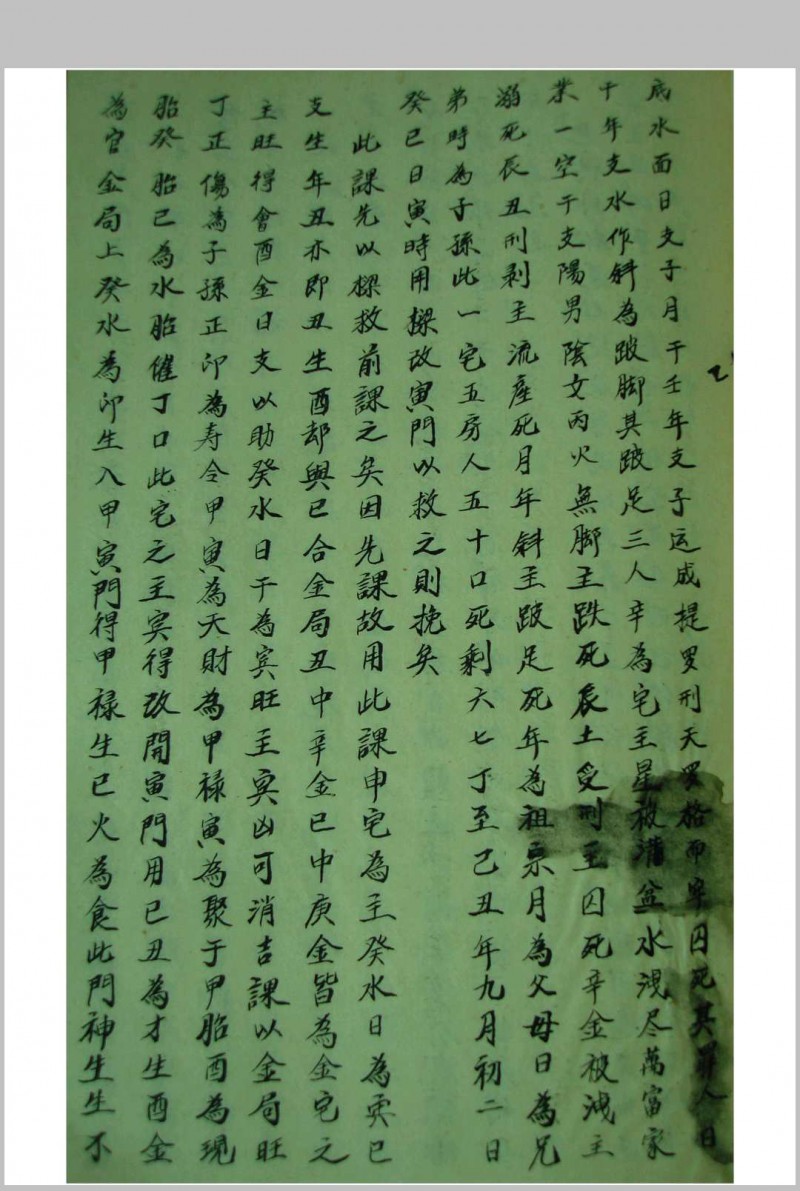 底水面日支子月干壬年支子运成提罗刑天罗格而牢囚死其罪人日
干年支水作斜為跛脚其跛足三人辛為宅主星被满盆水浅尽萬富家
業一空干支陽男陰女丙火無脚主跌死辰土受刑主囚死辛金被浅主
溺死辰丑刑剥主流産死月年斜主跛足死年為祖業月為父母日為兄
弟時為子孫此一宅五房人五十口死剩六七丁至己丑年九月初二日
癸巳日寅時用樑改寅門以救之則挽矣
此課先以樑救前課之矣因先課故用此課申宅為主癸水日為宾巳
支生年丑亦即丑生酉却與巳合金局丑中辛金巳中庚金皆為金宅之
主旺得會酉金日支以助癸水日干為宾旺主宾凶可消吉課以金局旺
丁正傷為子孫正印為寿令甲寅為天財為甲禄寅為聚于甲胎酉為現
胎癸胎巳為水胎催丁口此宅之主宾得改開寅門用巳丑為才生酉金
為官金局上癸水為印生入甲寅門得甲禄生巳火為食此門神生生不